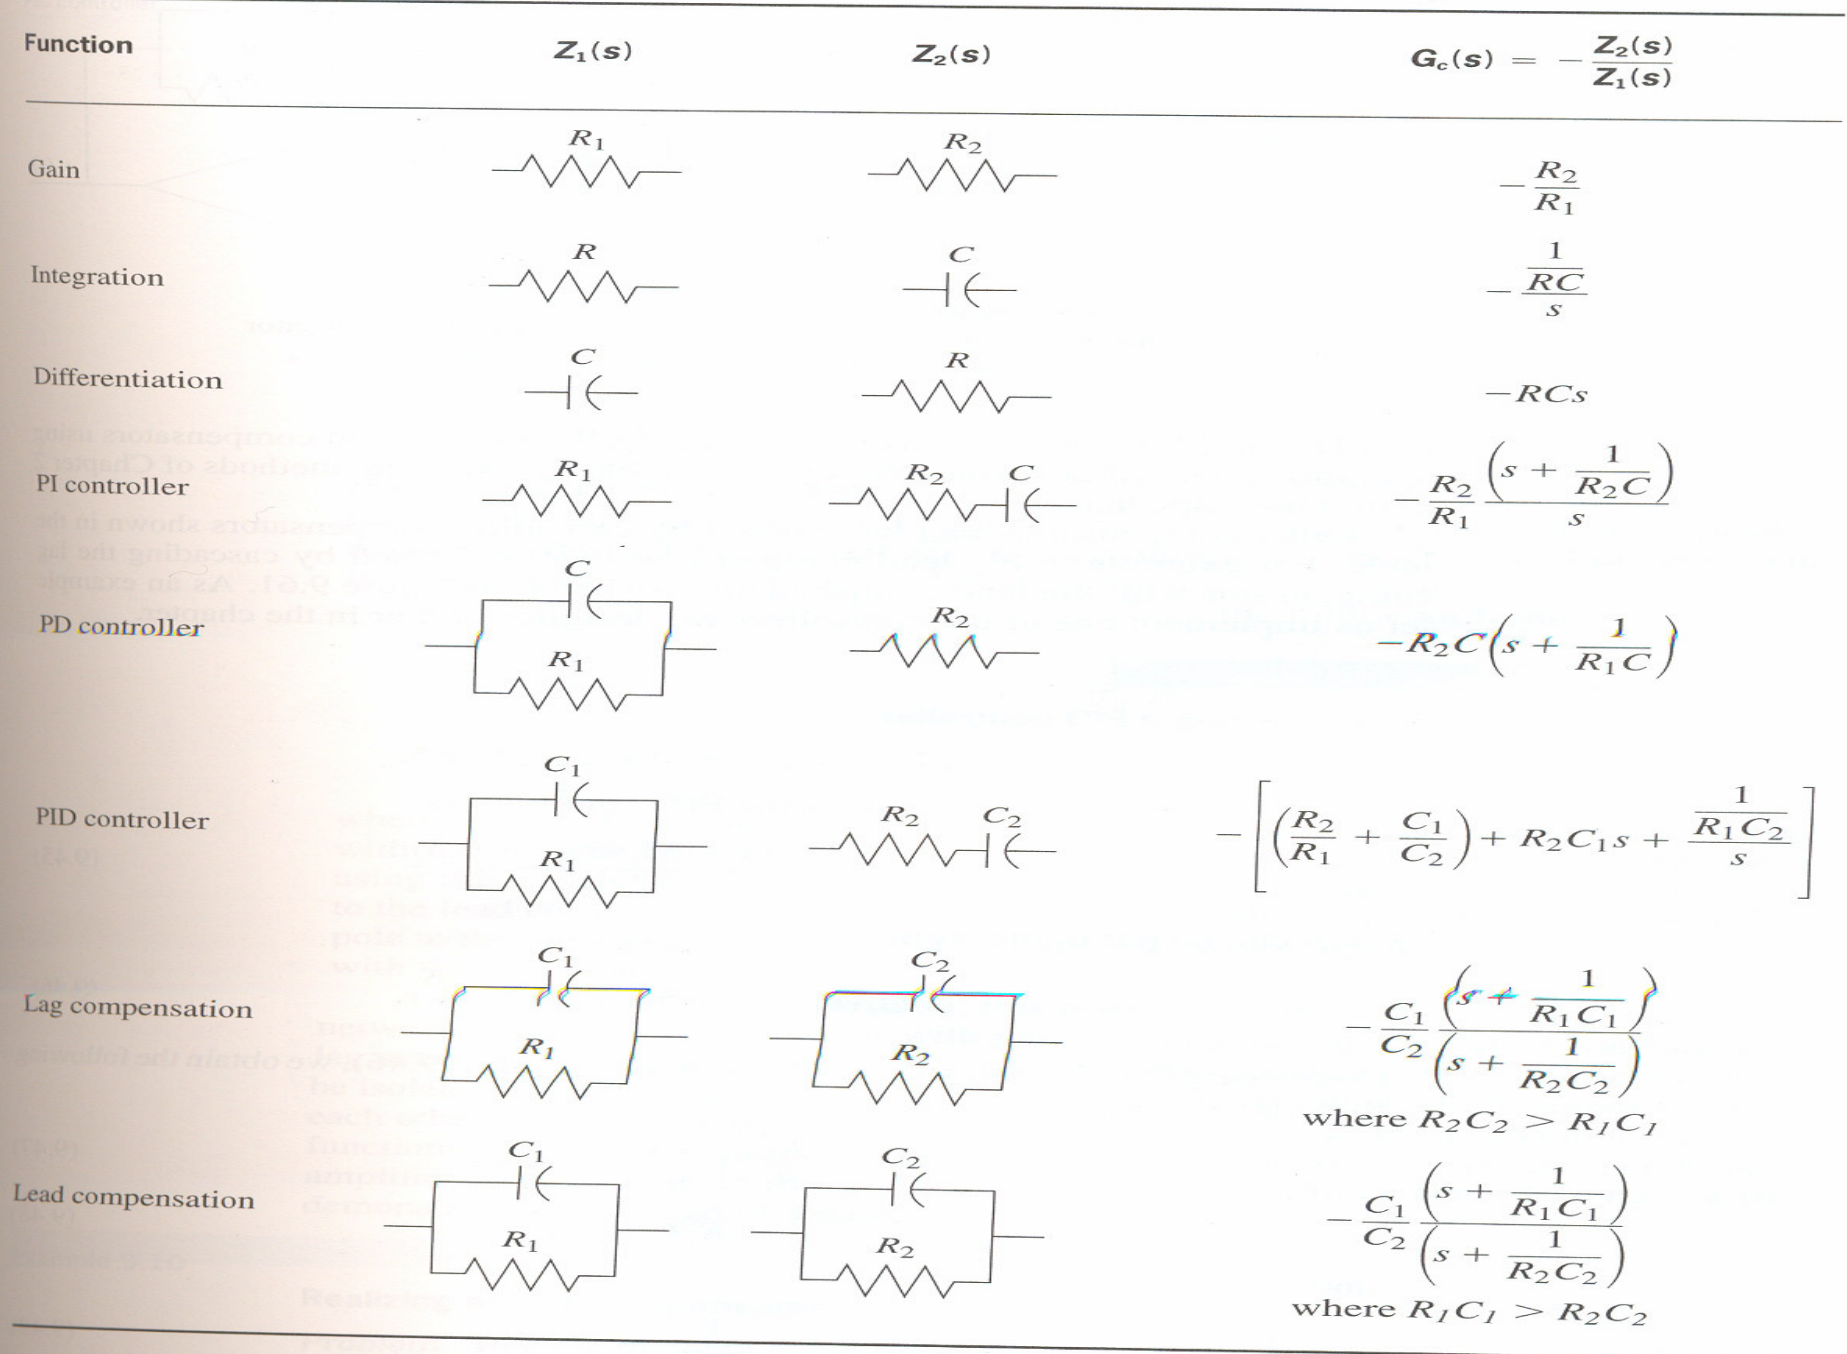 Function Z₁(s) Z₂(s) G_c(s) = −Z₂(s)/Z₁(s)
Gain R₁ R₂ −R₂/R₁
Integration R C −(1/RC)/s
Differentiation C R −RCs
PI controller R₁ R₂ C −(R₂/R₁)(s + 1/(R₂C))/s
PD controller C R₁ R₂ −R₂C(s + 1/(R₁C))
PID controller C₁ R₁ R₂ C₂ −[(R₂/R₁ + C₁/C₂) + R₂C₁s + (1/(R₁C₂))/s]
Lag compensation C₁ R₁ C₂ R₂ −(C₁/C₂)(s + 1/(R₁C₁))/(s + 1/(R₂C₂))
where R₂C₂ > R₁C₁
Lead compensation C₁ R₁ C₂ R₂ −(C₁/C₂)(s + 1/(R₁C₁))/(s + 1/(R₂C₂))
where R₁C₁ > R₂C₂